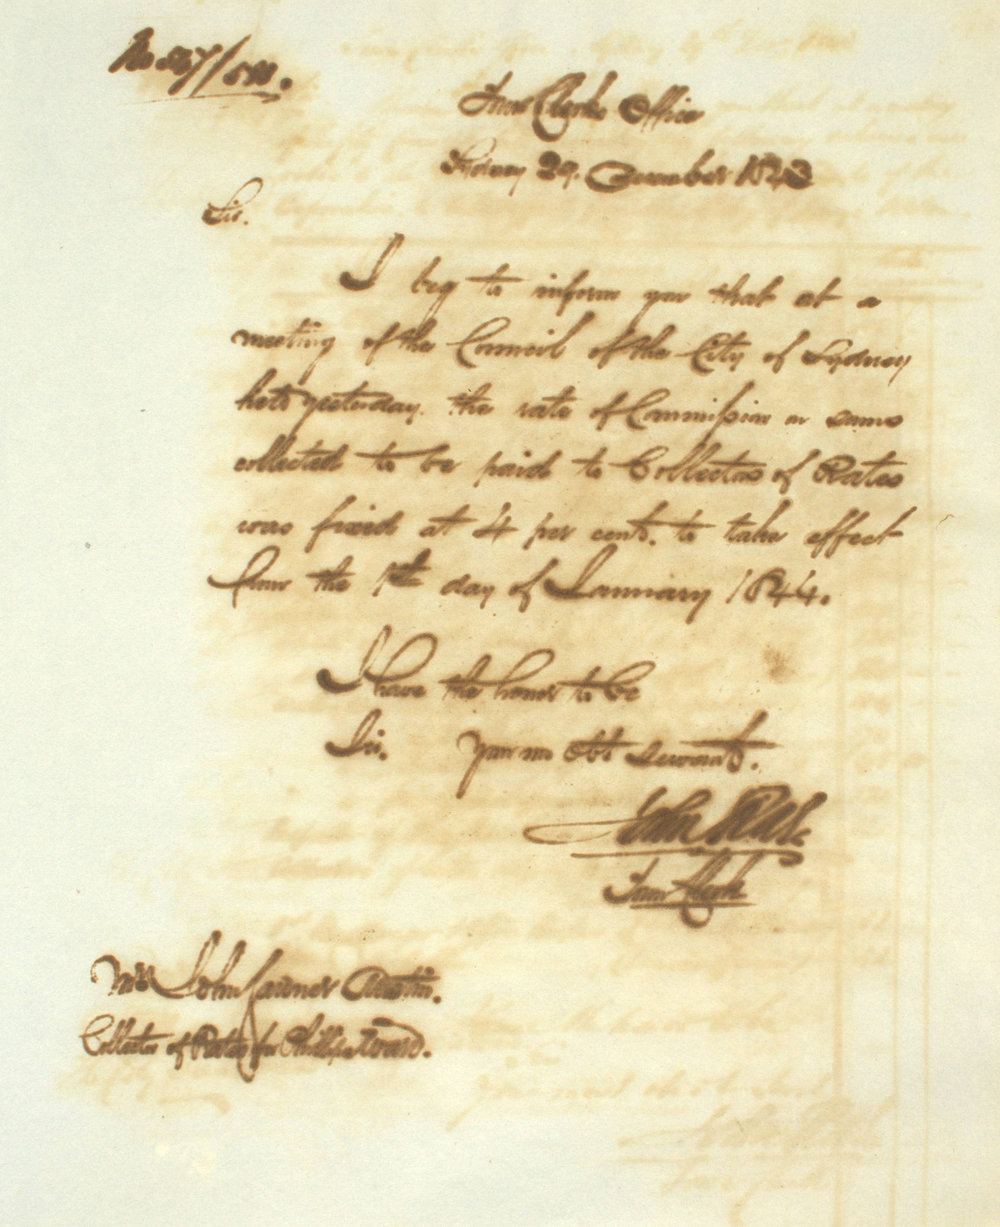 Town Clerks Office
Sydney 29. December 1843
Sir.
I beg to inform you that at a
meeting of the Council of the City of Sydney
held yesterday. the rate of Commission on sums
collected to be paid to Collectors of Rates
was fixed at 4 per cent. to take effect
from the 1st day of January 1844.
I have the honor to be
Sir. Your mo Obt Servant.
John
Town Clerk
Mr. John Austin.
Collector of Rates for Phillip Ward.